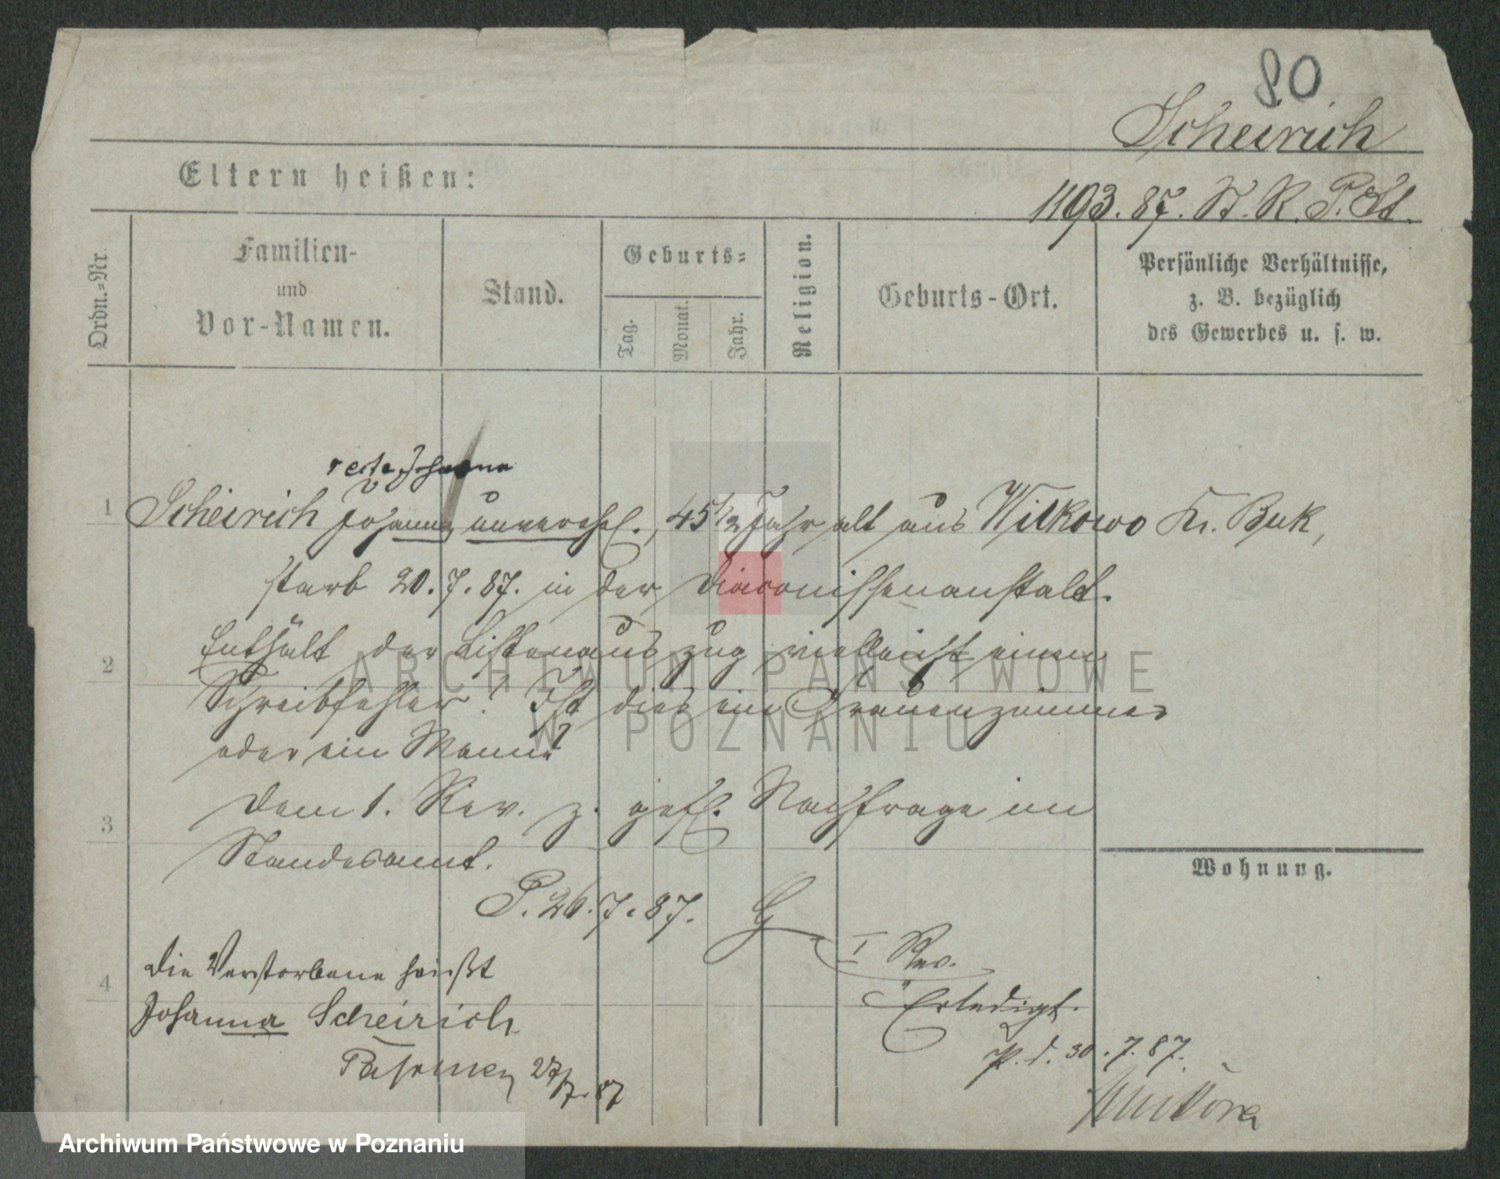 80
Scheirich
Eltern heißen:
1193. 87. St. R. P. II.
Ordn.=Nr.
Familien-
und
Vor-Namen.
Stand.
Geburts=
Tag.
Monat.
Jahr.
Religion.
Geburts-Ort.
Persönliche Verhältnisse,
z. B. bezüglich
des Gewerbes u. s. w.
recte Johanna
1 Scheirich Johann, unverehel., 45 1/2 Jahr alt aus Wilkowo Kr. Buk,
starb 20. 7. 87. in der Diaconissenanstalt.
Enthält der Listenauszug vielleicht einen
2
Schreibfehler? Ist dies ein Frauenzimmer
oder ein Mann?
Dem 1. Rev. z. gefl. Nachfrage im
3
Standesamt.
Wohnung.
P. 26. 7. 87. G
I Rev.
Die Verstorbene heißt
4
Erledigt.
Johanna Scheirich
P. d. 30. 7. 87.
27/7. 87
ARCHIWUM PAŃSTWOWE
W POZNANIU
Archiwum Państwowe w Poznaniu